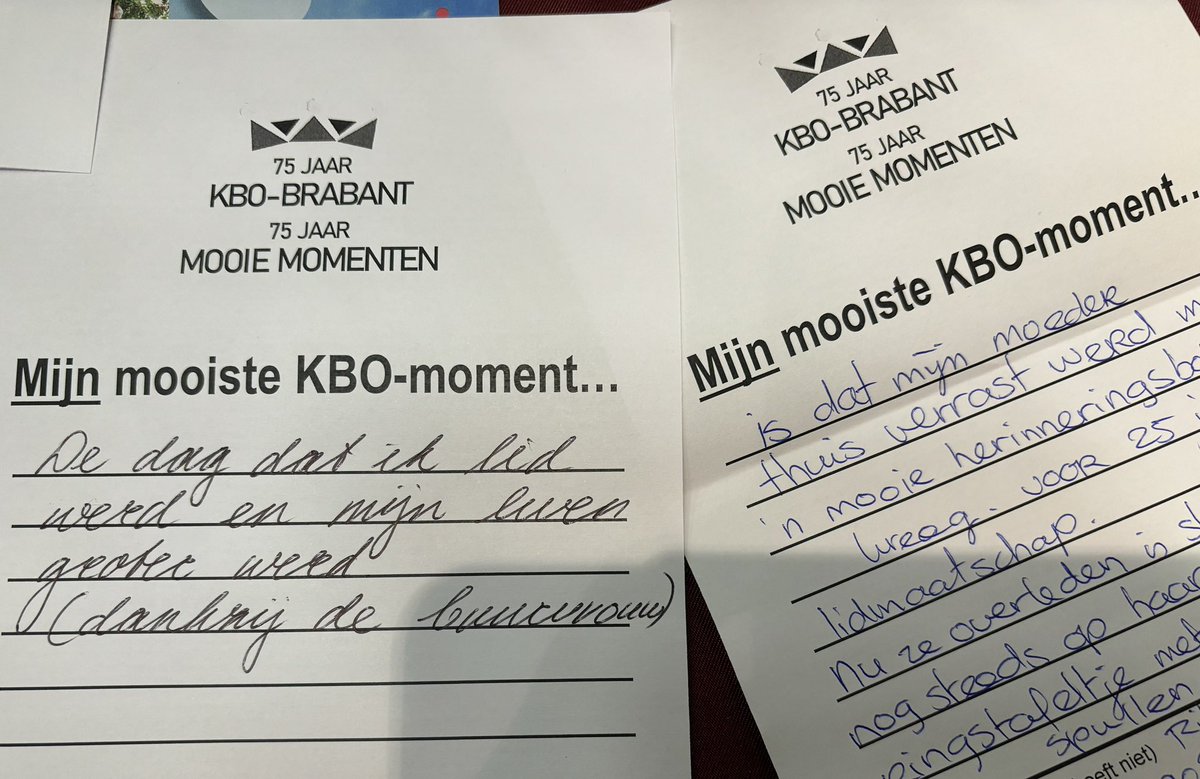 75 JAAR
KBO-BRABANT
75 JAAR
MOOIE MOMENTEN
Mijn mooiste KBO-moment...
De dag dat ik lid
werd en mijn leven
groter werd
(dankzij de buurvrouw)
75 JAAR
KBO-BRABANT
75 JAAR
MOOIE MOMENTEN
Mijn mooiste KBO-moment...
is dat mijn moeder
thuis verrast werd m
'n mooie herinneringsbe
kreeg. voor 25
lidmaatschap.
nu ze overleden is s
nog steeds op haar
ingstafeltje met
spullen
eeft niet)